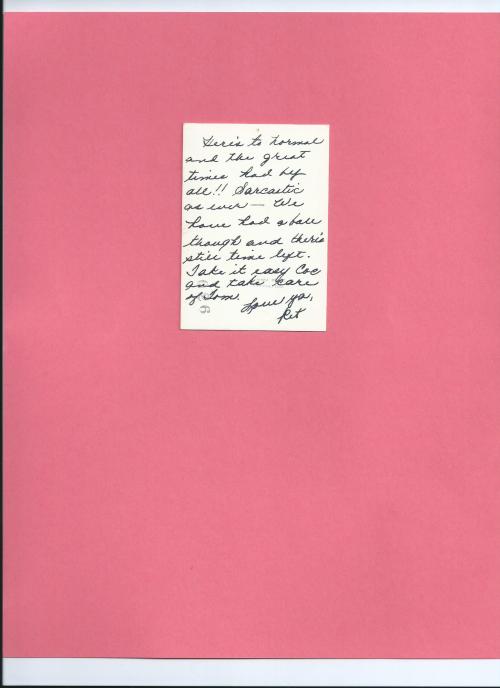 Here's to normal
and the great
times had by
all!! Sarcastic
as ever — We
have had a ball
though and there's
still time left.
Take it easy Coc
and take care
of Tom.
Love ya,
Ret